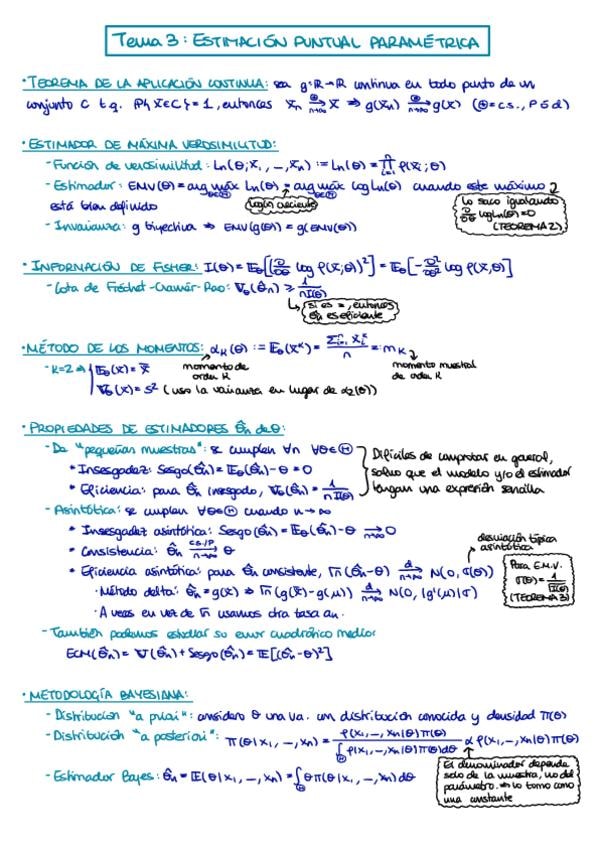 Tema 3: ESTIMACIÓN PUNTUAL PARAMÉTRICA
· TEOREMA DE LA APLICACIÓN CONTINUA: sea g:ℝ→ℝ continua en todo punto de un
conjunto C t.q. P{X∈C}=1, entonces Xn →(⊛, n→∞) X ⇒ g(Xn) →(⊛, n→∞) g(X) (⊛=c.s., P ó d)
· ESTIMADOR DE MÁXIMA VEROSIMILITUD:
- Función de verosimilitud: Ln(θ; X1, ..., Xn) := Ln(θ) = ∏ᵢ₌₁ⁿ f(Xi; θ)
- Estimador: EMV(θ) = arg máx θ∈Θ Ln(θ) = arg máx θ∈Θ log Ln(θ) cuando este máximo
está bien definido
log(x) creciente
Lo saco igualando
∂/∂θ log Ln(θ) = 0
(TEOREMA 2)
- Invarianza: g biyectiva ⇒ EMV(g(θ)) = g(EMV(θ))
· INFORMACIÓN DE FISHER: I(θ) = Eθ[(∂/∂θ log f(X;θ))²] = Eθ[-∂²/∂θ² log f(X;θ)]
- Cota de Fréchet-Cramér-Rao: Vθ(θ̂n) ≥ 1/(nI(θ))
si es =, entonces
θ̂n es eficiente
· MÉTODO DE LOS MOMENTOS: αK(θ) := Eθ(Xᴷ) = Σᵢ₌₁ⁿ Xiᴷ / n =: mK
momento de
orden K
momento muestral
de orden K
- K=2 ⇒ { Eθ(X) = X̄
Vθ(X) = S² (uso la varianza en lugar de α2(θ))
· PROPIEDADES DE ESTIMADORES θ̂n de θ:
- De "pequeñas muestras": se cumplen ∀n ∀θ∈Θ
* Insesgadez: Sesgo(θ̂n) = Eθ(θ̂n) - θ = 0
* Eficiencia: para θ̂n insesgado, Vθ(θ̂n) = 1/(nI(θ))
Difíciles de comprobar en general,
salvo que el modelo y/o el estimador
tengan una expresión sencilla
- Asintótica: se cumplen ∀θ∈Θ cuando n→∞
* Insesgadez asintótica: Sesgo(θ̂n) = Eθ(θ̂n) - θ →(n→∞) 0
* Consistencia: θ̂n →(c.s./P, n→∞) θ
desviación típica
asintótica
* Eficiencia asintótica: para θ̂n consistente, √n(θ̂n-θ) →(d, n→∞) N(0, σ(θ))
Para E.M.V.
σ(θ) = 1/√I(θ)
(TEOREMA 3)
· Método delta: θ̂n = g(x̄) ⇒ √n(g(x̄)-g(μ)) →(d, n→∞) N(0, |g'(μ)|σ)
· A veces en vez de √n usamos otra tasa an.
- También podemos estudiar su error cuadrático medio:
ECM(θ̂n) = V(θ̂n) + Sesgo(θ̂n) = E[(θ̂n-θ)²]
· METODOLOGÍA BAYESIANA:
- Distribución "a priori": considero θ una v.a. con distribución conocida y densidad π(θ)
- Distribución "a posteriori": π(θ|x1, ..., xn) = f(x1, ..., xn|θ)π(θ) / ∫Θ f(x1, ..., xn|θ)π(θ)dθ ∝ f(x1, ..., xn|θ)π(θ)
El denominador depende
solo de la muestra, no del
parámetro. ⇒ lo tomo como
una constante
- Estimador Bayes: θ̂n = E(θ|x1, ..., xn) = ∫Θ θπ(θ|x1, ..., xn)dθ